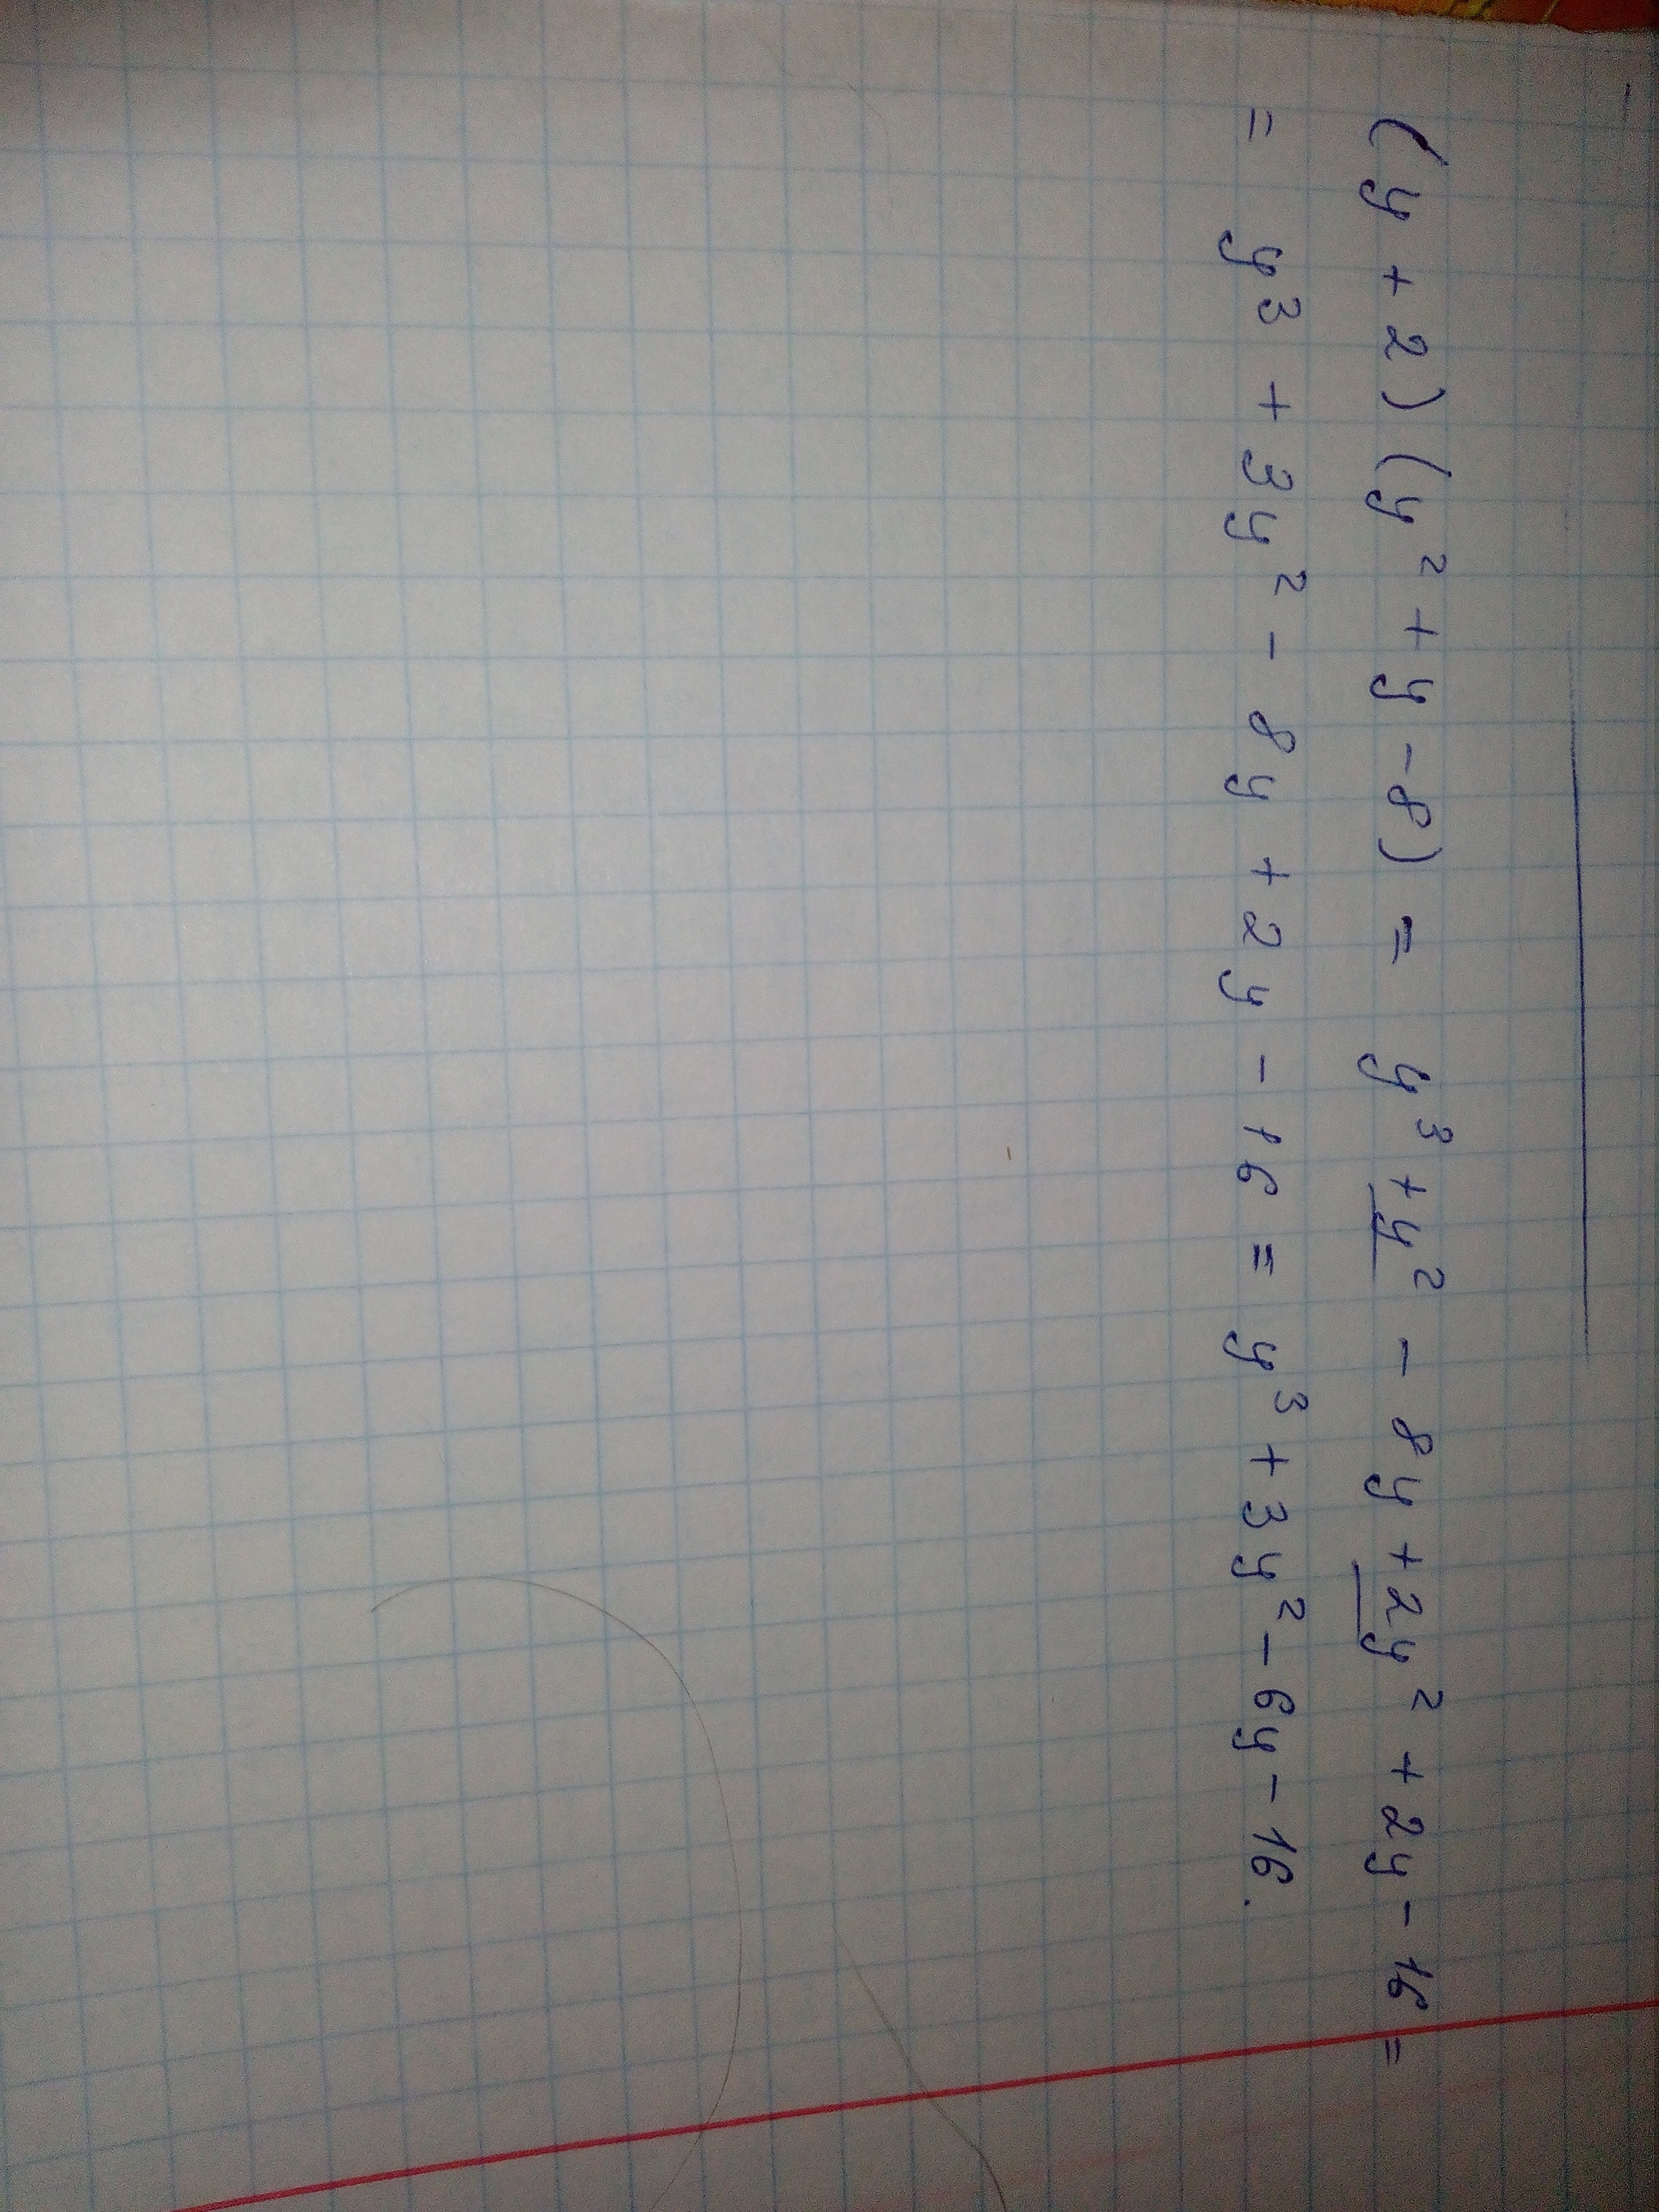 (y + 2)(y² + y - 8) = y³ + y² - 8y + 2y² + 2y - 16 =
= y³ + 3y² - 8y + 2y - 16 = y³ + 3y² - 6y - 16.